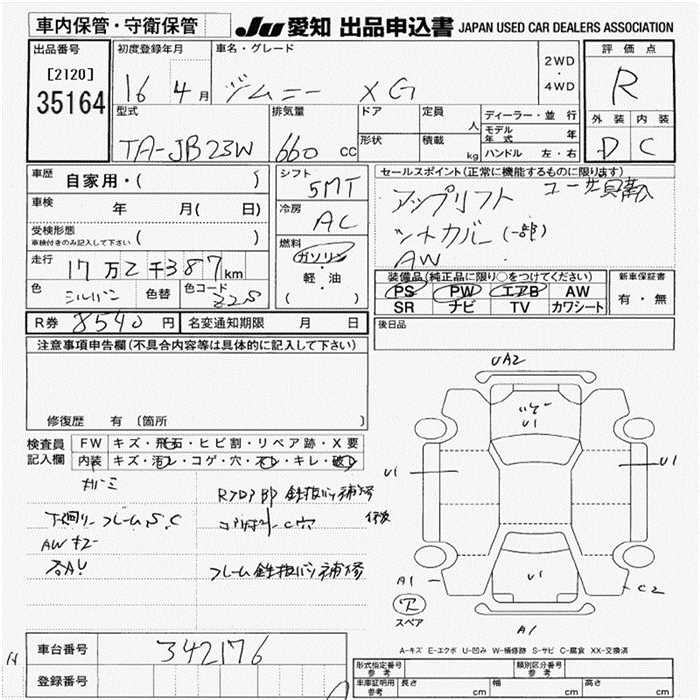 車内保管・守衛保管
JU 愛知 出品申込書 JAPAN USED CAR DEALERS ASSOCIATION
出品番号
[2120]
35164
初度登録年月
16 4月
車名・グレード
ジムニー XG
2WD
・
4WD
評価点
R
外装 内装
D C
型式
TA-JB23W
排気量
660 cc
ドア
形状
定員
人
積載
kg
ディーラー・並行
モデル年式 年
ハンドル 左・右
車歴
自家用・( )
車検 年 月( 日)
受検形態
車検付きのみ記入して下さい ( )
走行
17万2千387km
色
シルバー
色替
色コード
Z2S
シフト
5MT
冷房
AC
燃料
ガソリン
・
軽・油
( )
セールスポイント(正常に機能するものに限ります)
アップリフト ユーザー買入
シートカバー(一部)
AW
装備品(純正品に限り○をつけてください)
PS PW エアB AW
SR ナビ TV カワシート
新車保証書
有・無
R券 8540円
名変通知期限 月 日
後日品
注意事項申告欄(不具合内容等は具体的に記入して下さい)
修復歴 有〔箇所 〕
検査員
記入欄
FW キズ・飛石・ヒビ割・リペア跡・X要
内装 キズ・汚レ・コゲ・穴・スレ・キレ・破レ
下廻り フレームS.C
AWキズ
フレーム鉄板バン補修
UA2
U1
U1
U1
U1
A1
C2
A1
スペア
A-キズ E-エクボ U-凹み W-補修跡 S-サビ C-腐食 XX-交換済
車台番号
342176
登録番号
形式指定番号
参考
類別区分番号
参考
車庫証明用
参考
長さ cm
幅 cm
高さ cm